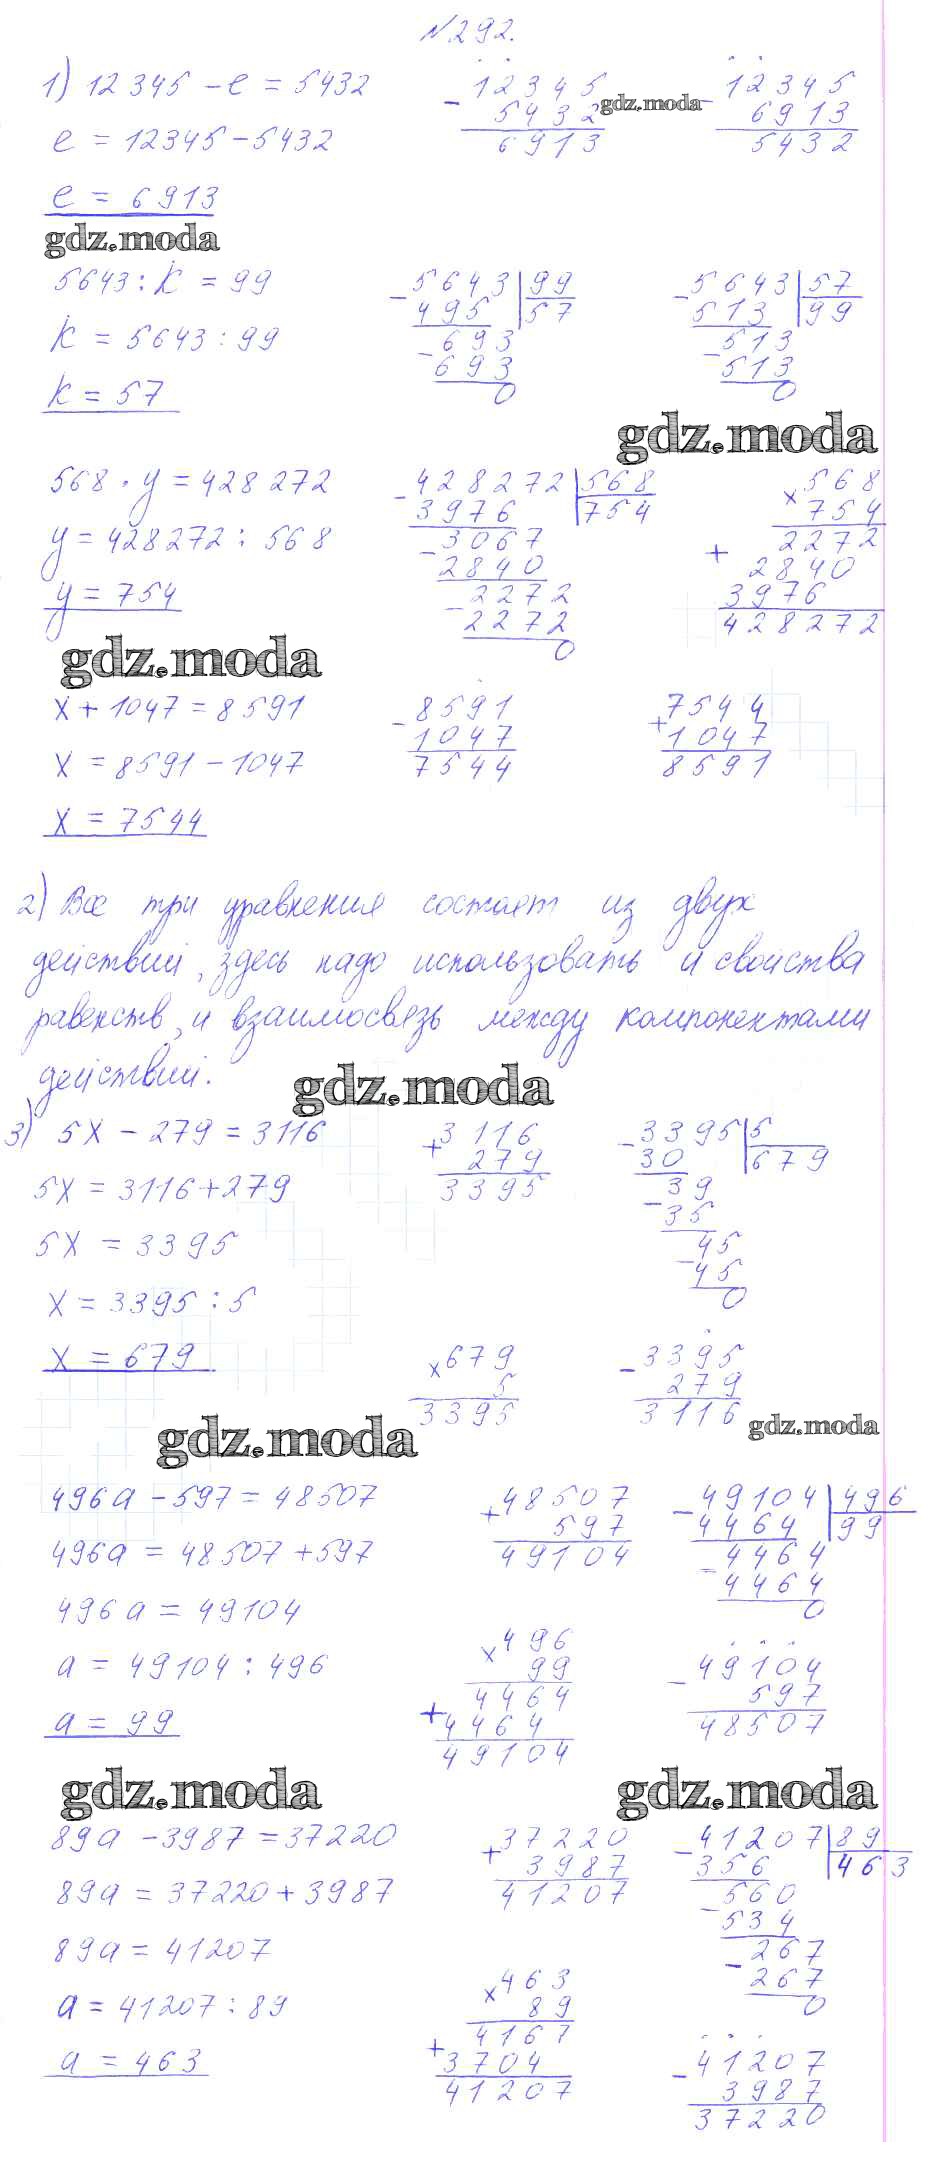 №292.
1) 12345 - e = 5432
e = 12345 - 5432
e = 6913
- 12345
5432
6913
gdz.moda
- 12345
6913
5432
gdz.moda
5643 : k = 99
k = 5643 : 99
k = 57
- 5643 | 99
495 | 57
- 693
693
0
- 5643 | 57
513 | 99
- 513
513
0
gdz.moda
568 · y = 428272
y = 428272 : 568
y = 754
- 428272 | 568
3976 | 754
- 3067
2840
- 2272
2272
0
x 568
754
2272
+ 2840
3976
428272
gdz.moda
x + 1047 = 8591
x = 8591 - 1047
x = 7544
- 8591
1047
7544
+ 7544
1047
8591
2) Все три уравнения состоят из двух
действий, здесь надо использовать и свойства
равенств, и взаимосвязь между компонентами
действий.
gdz.moda
3) 5x - 279 = 3116
5x = 3116 + 279
5x = 3395
x = 3395 : 5
x = 679
+ 3116
279
3395
- 3395 | 5
30 | 679
39
- 35
- 45
45
0
x 679
5
3395
- 3395
279
3116
gdz.moda
gdz.moda
496a - 597 = 48507
496a = 48507 + 597
496a = 49104
a = 49104 : 496
a = 99
+ 48507
597
49104
- 49104 | 496
4464 | 99
- 4464
4464
0
x 496
99
4464
+ 4464
49104
- 49104
597
48507
gdz.moda
gdz.moda
89a - 3987 = 37220
89a = 37220 + 3987
89a = 41207
a = 41207 : 89
a = 463
+ 37220
3987
41207
- 41207 | 89
356 | 463
- 560
534
- 267
267
0
x 463
89
4167
+ 3704
41207
- 41207
3987
37220